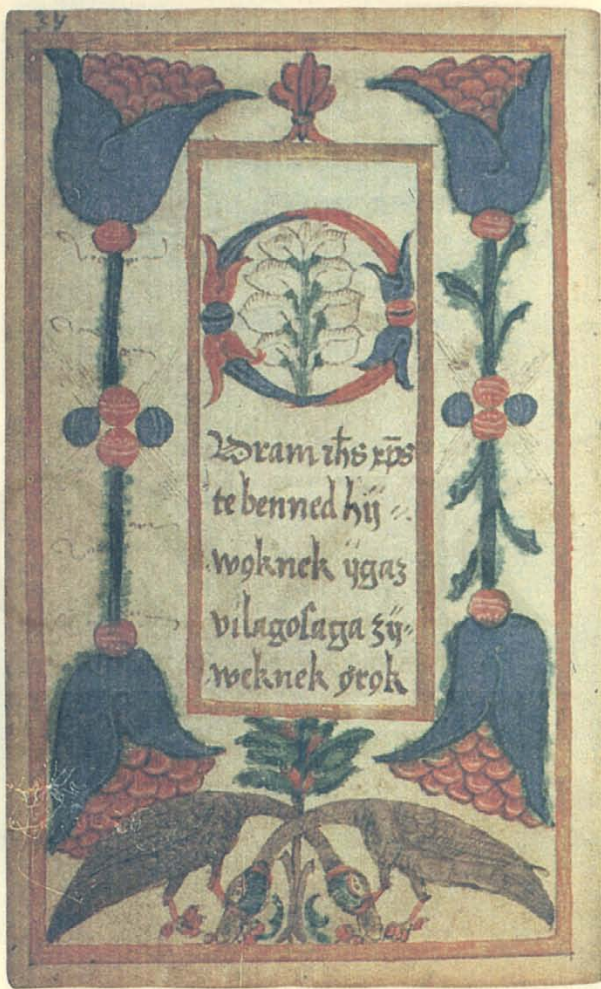 34
Vram ihs xps
te benned hÿ
wọknek ÿgaz
vilagoſaga zÿ-
weknek ọrọk